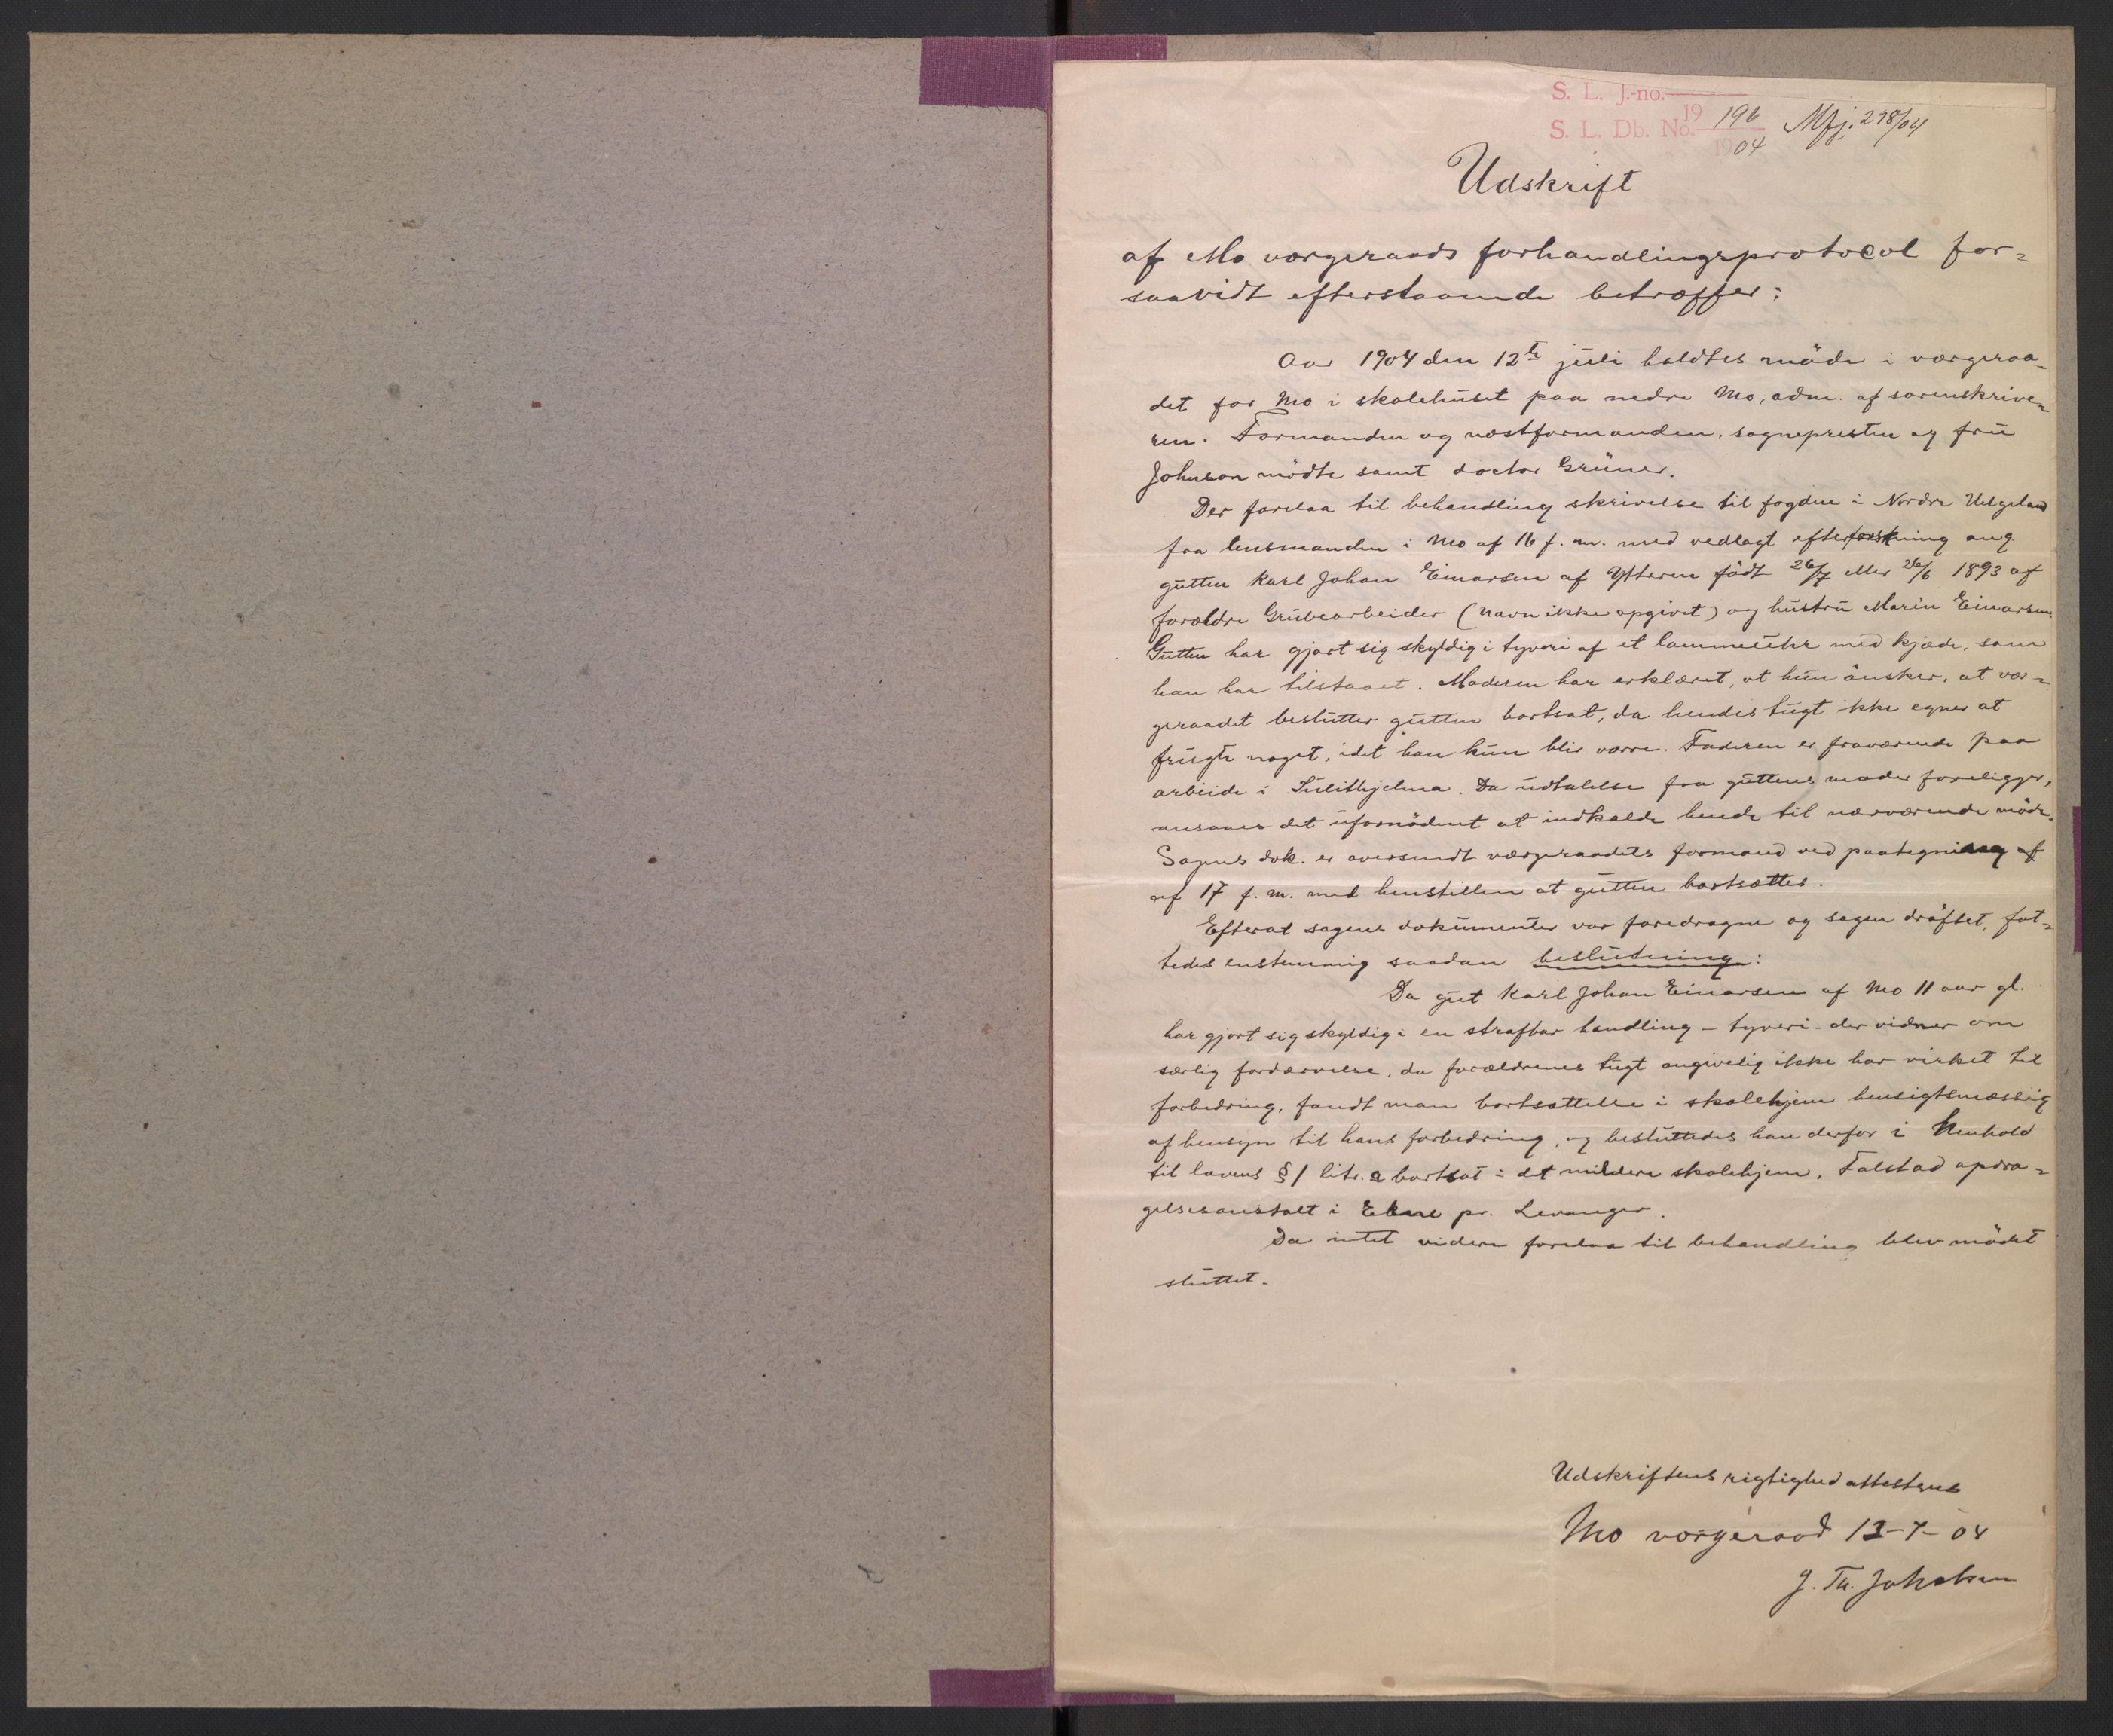 S. L. J.-no.
19
S. L. Db. No. 196 Mfj. 298/04
1904
Udskrift
af Mo værgeraads forhandlingsprotocol for=
saavidt efterstaaende betræffer:
Aar 1904 den 12te juli holdtes möde i værgeraa=
det for Mo i skolehuset paa nedre Mo, adm. af sorenskrive=
ren. Formanden og næstformanden, sognepresten og frü
Johnson mödte samt doctor Grüner.
Der forelaa til behandling skrivelse til fogden i Nordre Helgeland
fra lensmanden i Mo af 16 f. m. med vedlagt efterforskning ang
gütten Karl Johan Einarsen af Ytteren födt 26/7 eller 26/6 1893 af
forældre Grübearbeider (navn ikke opgivet) og hüstrü Marin Einarsen.
Gütten har gjort sig skyldig i tyveri af et lommeühr med kjæde, som
han har tilstaaet. Moderen har erklæret, at hün önsker, at vær=
geraadet beslütter gütten bortsat, da hendes tügt ikke egner at
frügte noget, idet han kün blir værre. Faderen er fraværende paa
arbeide i Sülithjelma. Da üdtalelse fra güttens moder foreligger,
ansaaes det üfornödent at indkalde hende til nærværende möde.
Sagens dok. er oversendt værgeraadets formand ved paategning af
af 17 f. m. med henstillen at gütten bortsættes.
Efterat sagens dokümenter var foredragne og sagen dröftet, fat=
tedes enstemmig saadan beslütning:
Da güt Karl Johan Einarsen af Mo 11 aar gl.
har gjort sig skyldig i en strafbar handling - tyveri - der vidner om
særlig fordærvelse, da forældrenes tügt angivelig ikke har virket til
forbedring, fandt man bortsættelse i skolehjem hensigtsmæssig
af hensyn til hans forbedring, og beslüttedes han derfor i Henhold
til lovens § 1 litr. a bortsat i det mildere skolehjem, Falstad opdra=
gelsesanstalt i Ekne pr. Levanger.
Da intet videre forelaa til behandling blev mödet
slüttet.
Udskriftens rigtighed attesteres
Mo værgeraad 13-7-04
J. Th. Jakobsen